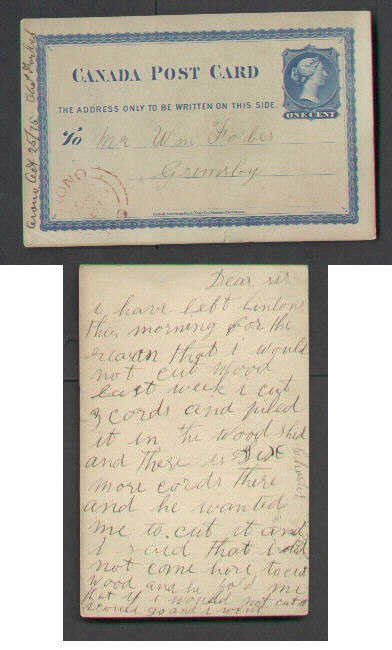 Orono Oct 25/75 Chas Forbes
CANADA POST CARD
THE ADDRESS ONLY TO BE WRITTEN ON THIS SIDE.
ONE CENT
To Mr Wm Forbes
Grimsby
ORONO
Dear sir
i have left lintons
this morning for the
reason that i would
not cut wood
last week i cut
3 cords and piled
it in the wood shed
and there is five
more cords there
and he wanted
me to cut it and
i said that i did
not come here to cut
wood and he told me
that if i would not cut it
i could go and i went
Charles